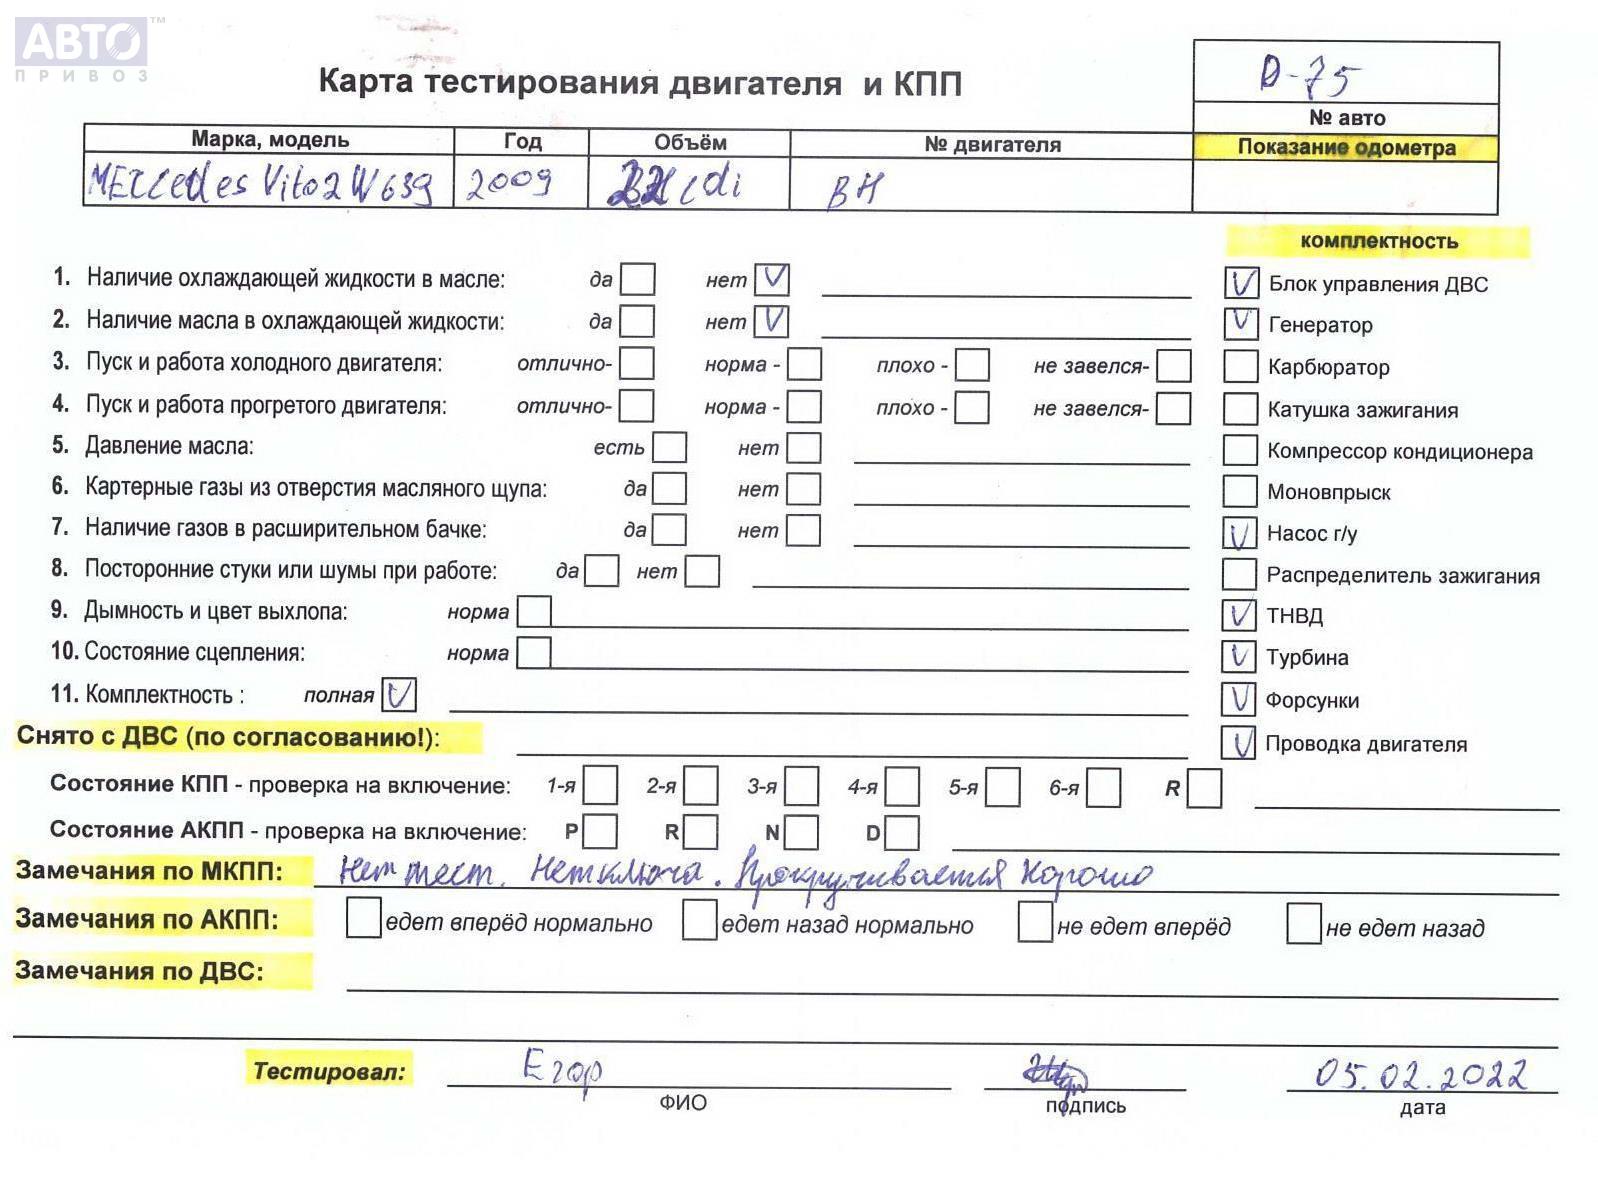 АВТО™
ПРИВОЗ
Карта тестирования двигателя и КПП
D-75
№ авто
Марка, модель Год Объём № двигателя Показание одометра
Mercedes Vito 2 W639 2009 cdi ВН
комплектность
1. Наличие охлаждающей жидкости в масле: да нет V V Блок управления ДВС
2. Наличие масла в охлаждающей жидкости: да нет V V Генератор
3. Пуск и работа холодного двигателя: отлично- норма - плохо - не завелся- Карбюратор
4. Пуск и работа прогретого двигателя: отлично- норма - плохо - не завелся- Катушка зажигания
5. Давление масла: есть нет Компрессор кондиционера
6. Картерные газы из отверстия масляного щупа: да нет Моновпрыск
7. Наличие газов в расширительном бачке: да нет V Насос г/у
8. Посторонние стуки или шумы при работе: да нет Распределитель зажигания
9. Дымность и цвет выхлопа: норма V ТНВД
10. Состояние сцепления: норма V Турбина
11. Комплектность : полная V V Форсунки
Снято с ДВС (по согласованию!): V Проводка двигателя
Состояние КПП - проверка на включение: 1-я 2-я 3-я 4-я 5-я 6-я R
Состояние АКПП - проверка на включение: P R N D
Замечания по МКПП: Нет тест. Нет ключа. Прокручивается хорошо
Замечания по АКПП: едет вперёд нормально едет назад нормально не едет вперёд не едет назад
Замечания по ДВС:
Тестировал: Егор 05.02.2022
ФИО подпись дата